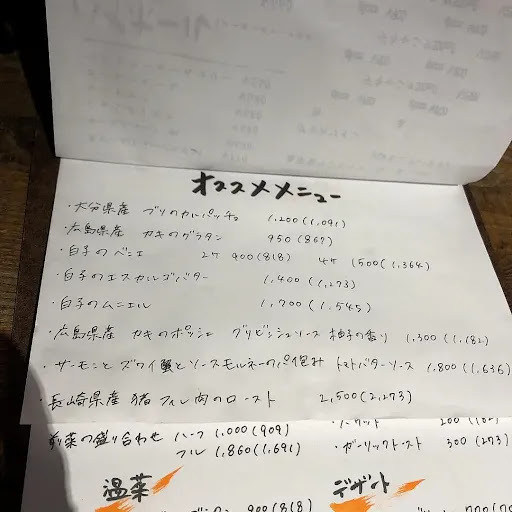 オススメメニュー
・大分県産 ブリのカルパッチョ 1,200(1,091)
・広島県産 カキのグラタン 950(867)
・白子のベニエ 2ケ 900(818) 4ケ 1500(1,364)
・白子のエスカルゴバター 1,400(1,273)
・白子のムニエル 1,700(1,545)
・広島県産 カキのポッシェ グリビッシュソース 柚子の香り 1,300(1,182)
・サーモンとズワイ蟹とソースモルネーのパイ包み トマトバターソース 1,800(1,636)
・長崎県産 猪フィレ肉のロースト 2,500(2,273)
前菜の盛り合わせ ハーフ 1,000(909)
フル 1,860(1,691)
200
・ガーリックトースト 300(273)
温菜
デザート
900(818)